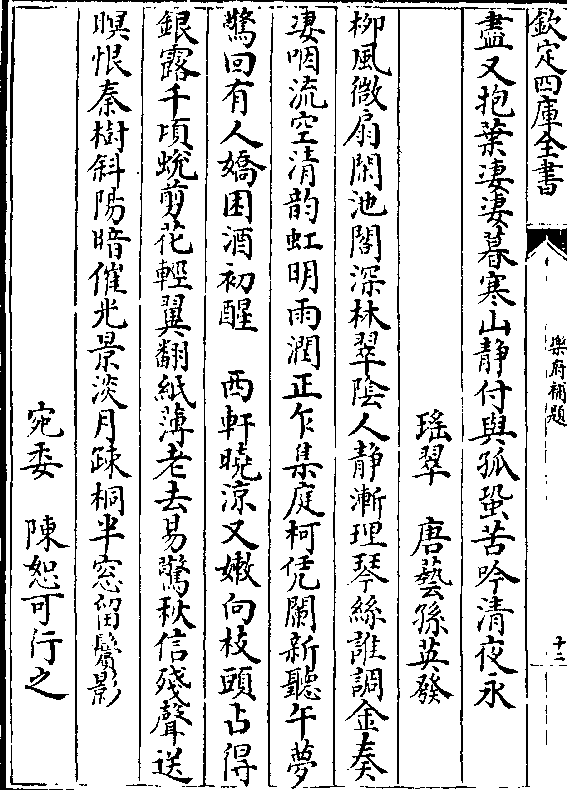 欽定四庫全書
樂府補題
十二
盡又抱葉淒淒暮寒山靜付與孤蛩苦吟清夜永
瑤翠　唐藝孫英發
柳風微扇閑池閣深林翠陰人靜漸理琴絲誰調金奏
淒咽流空清韵虹明雨潤正乍集庭柯凭闌新聽午夢
驚回有人嬌困酒初醒　西軒曉涼又嫩向枝頭占得
銀露千項蛻剪花輕翼翻紙薄老去易驚秋信殘聲送
暝恨秦樹斜陽暗催光景淡月疎桐半窓留鬢影
宛委　陳恕可行之